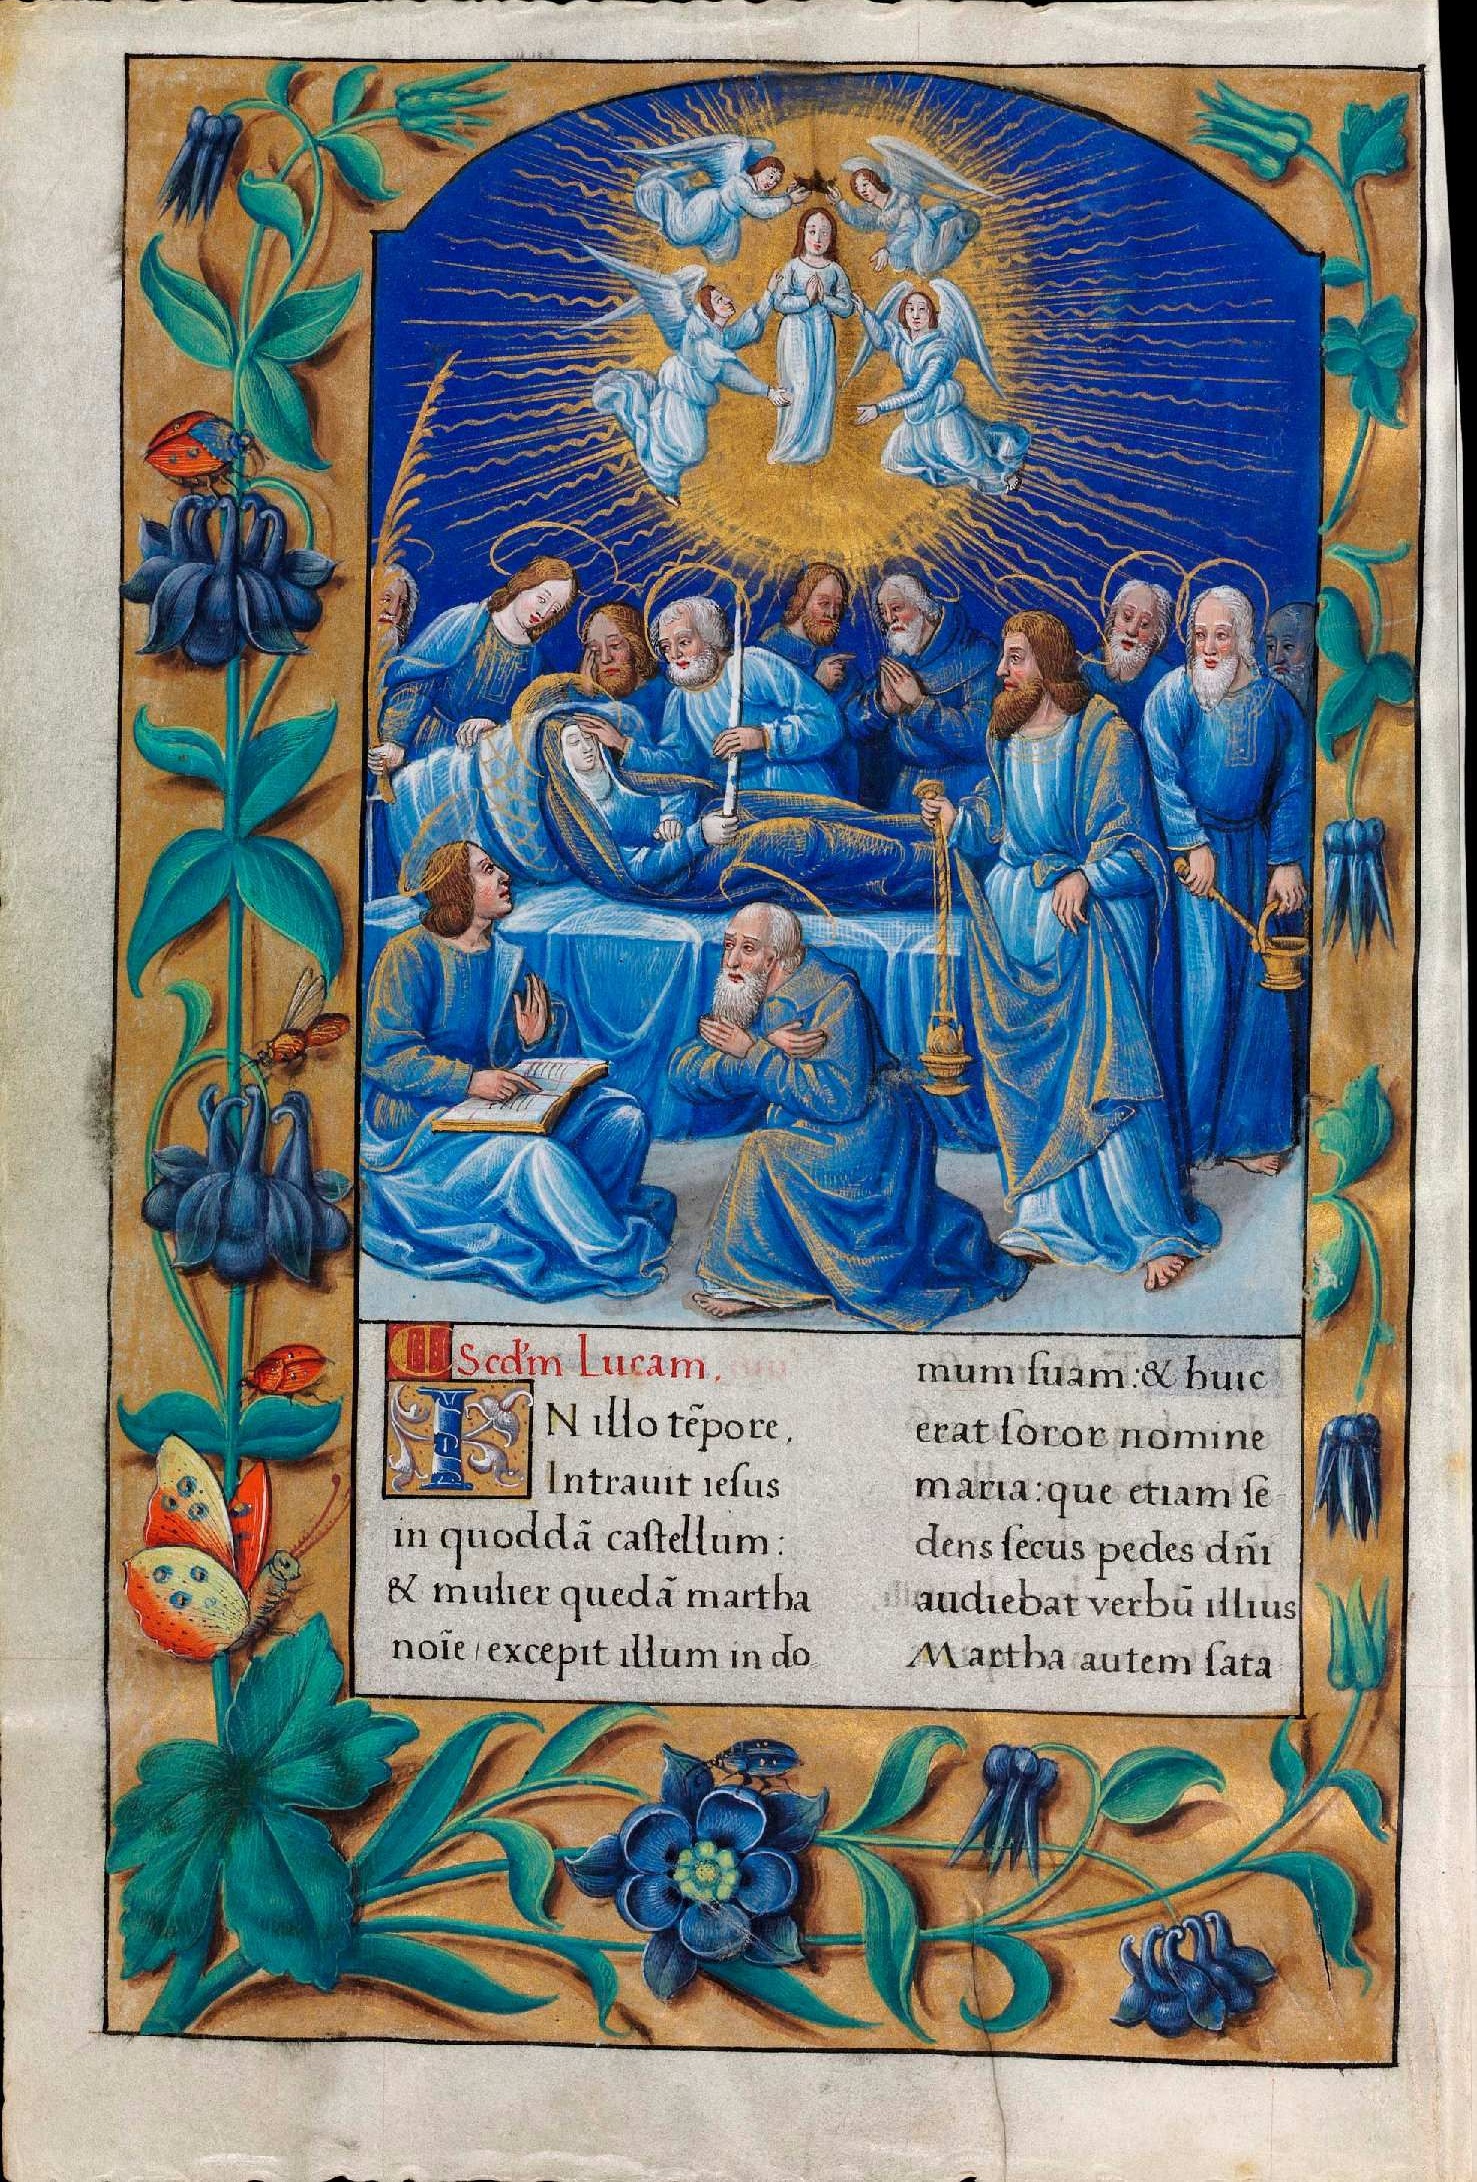 Scd'm Lucam.
IN illo tẽpore.
Intrauit iesus
in quoddã castellum:
& mulier quedã martha
noĩe / excepit illum in do
mum suam: & huic
erat soror nomine
maria: que etiam se
dens secus pedes dñi
audiebat verbũ illius
Martha autem sata